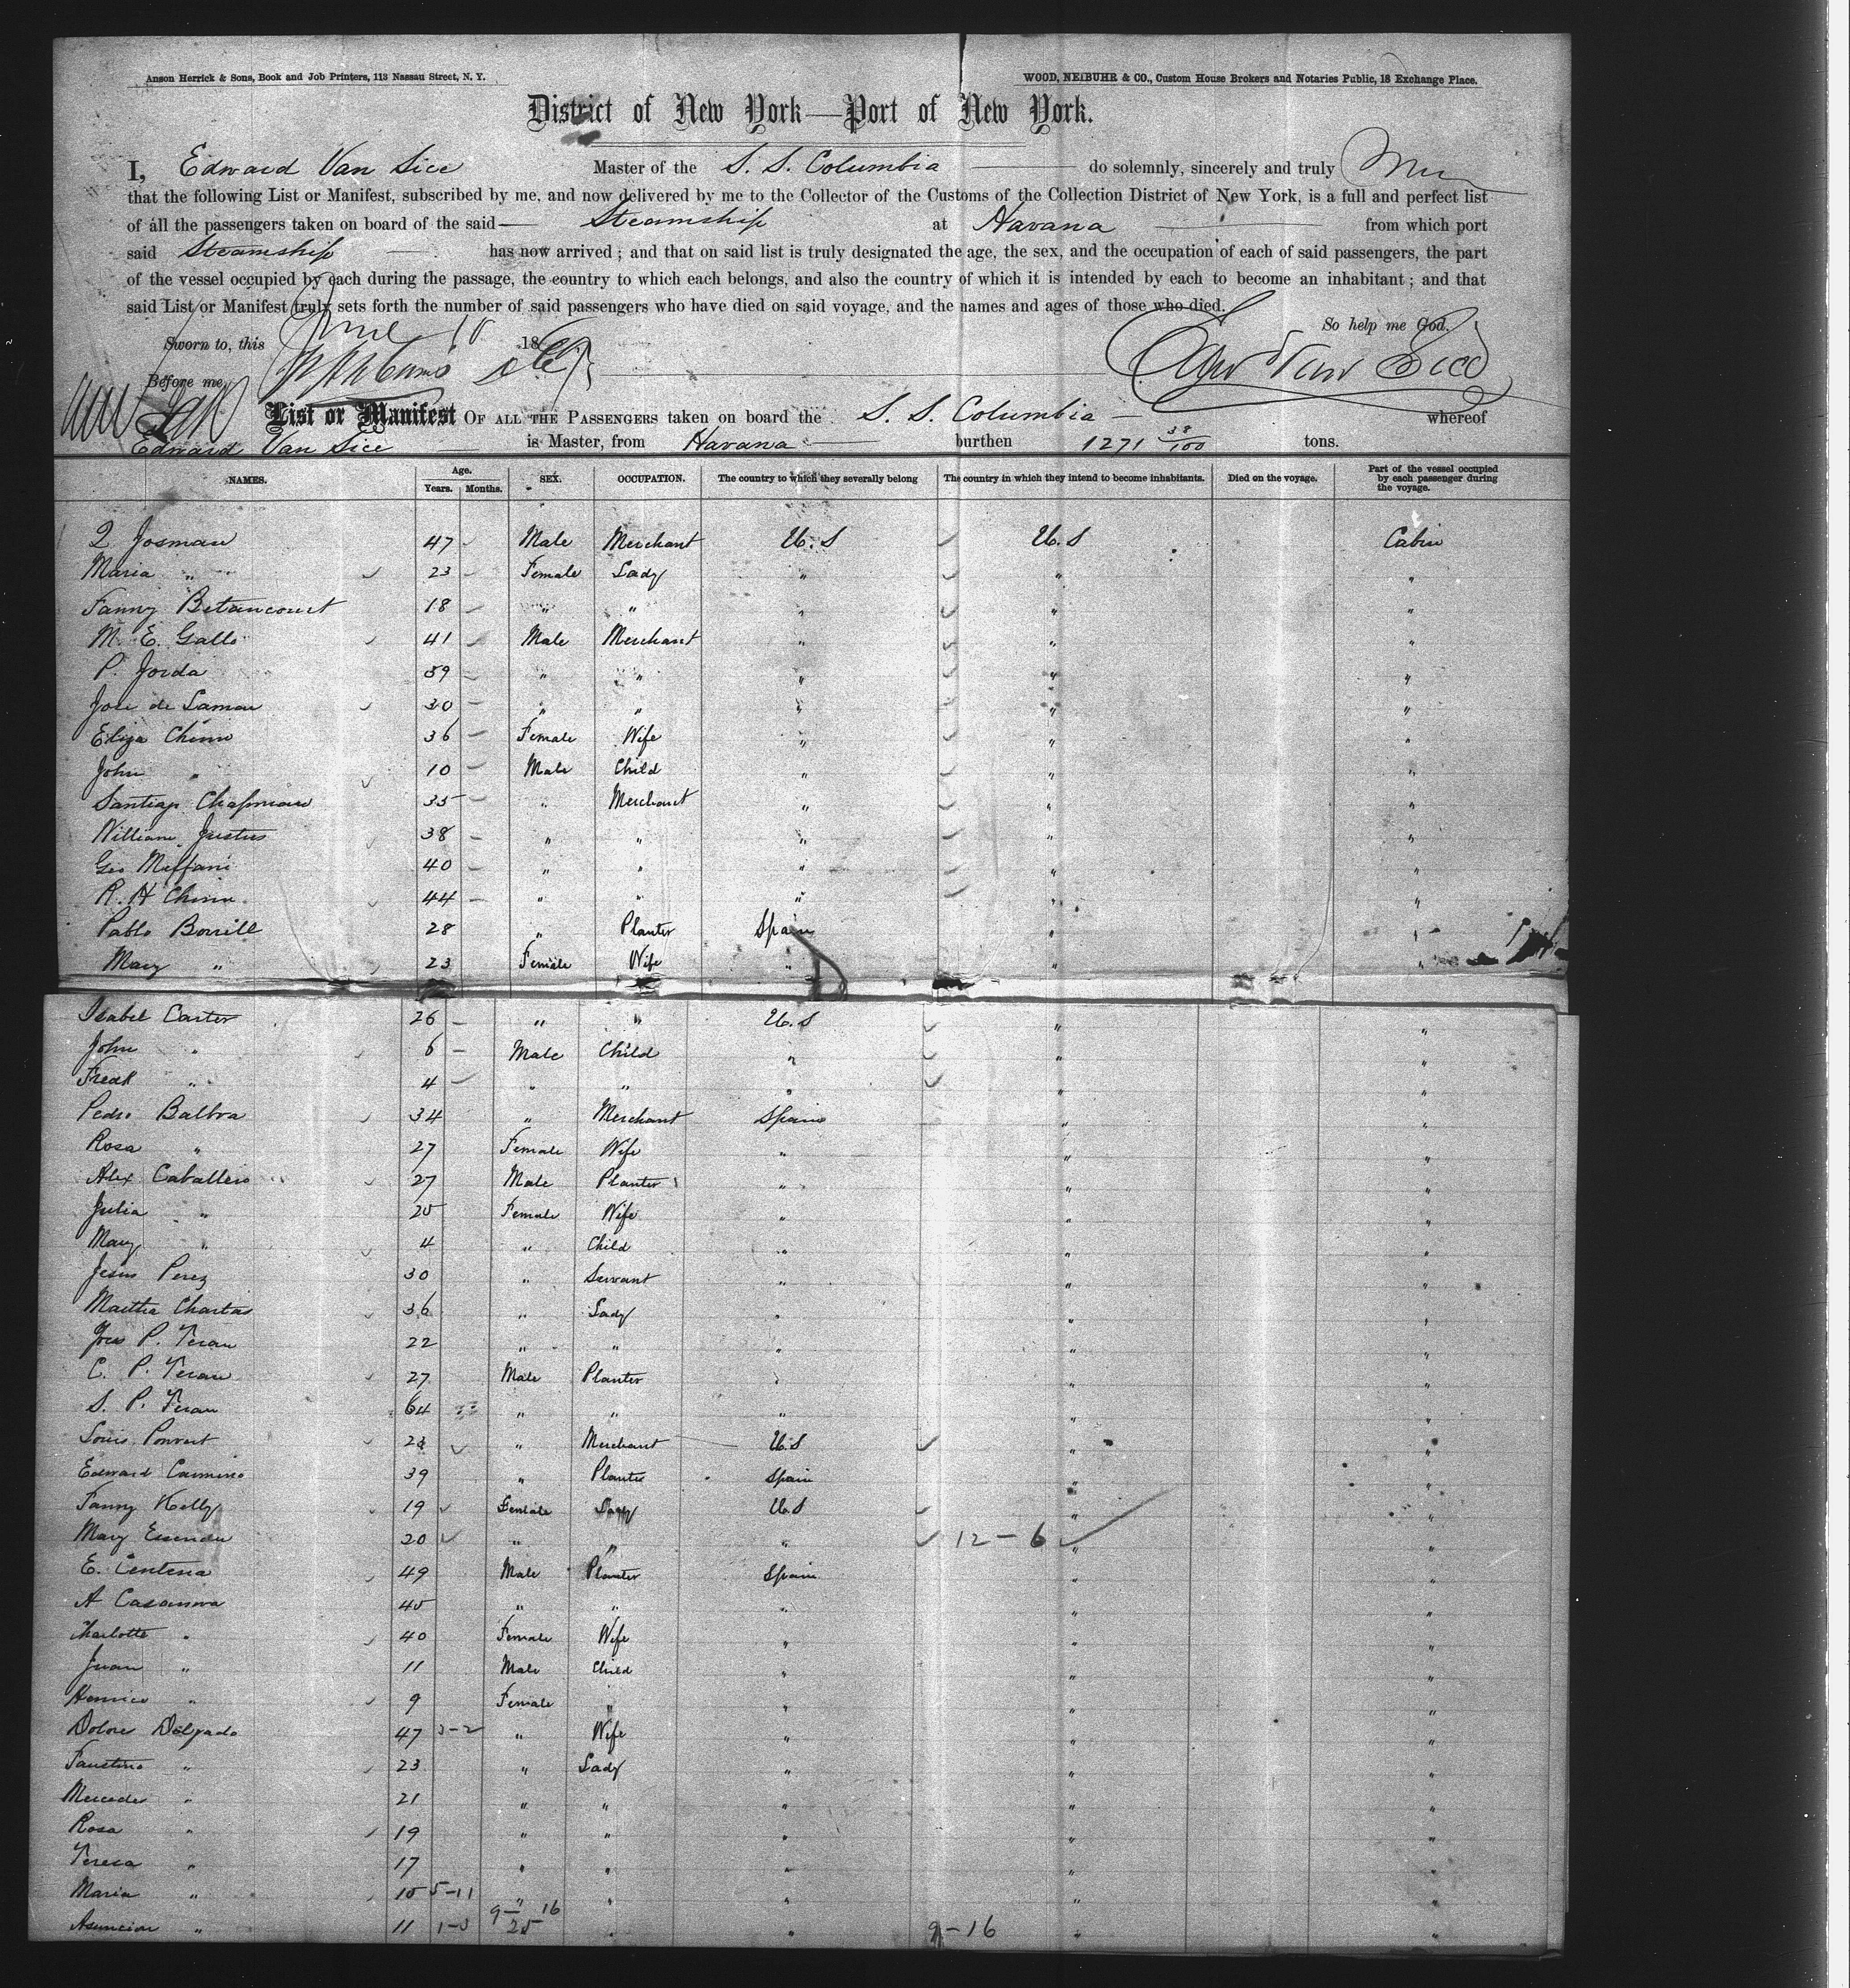 Anson Herrick & Sons, Book and Job Printers, 113 Nassau Street, N. Y.
WOOD, NEIBUHR & CO., Custom House Brokers and Notaries Public, 18 Exchange Place.
District of New York—Port of New York.
I, Edward Van Sice Master of the S. S. Columbia do solemnly, sincerely and truly
that the following List or Manifest, subscribed by me, and now delivered by me to the Collector of the Customs of the Collection District of New York, is a full and perfect list
of all the passengers taken on board of the said Steamship at Havana from which port
said Steamship has now arrived; and that on said list is truly designated the age, the sex, and the occupation of each of said passengers, the part
of the vessel occupied by each during the passage, the country to which each belongs, and also the country of which it is intended by each to become an inhabitant; and that
said List or Manifest truly sets forth the number of said passengers who have died on said voyage, and the names and ages of those who died.
So help me God.
Sworn to, this June 18
Before me, Edw Van Sice
List or Manifest OF ALL THE PASSENGERS taken on board the S. S. Columbia whereof
Edward Van Sice is Master, from Havana burthen 1271 38/100 tons.
NAMES. Age. Years. Months. SEX. OCCUPATION. The country to which they severally belong The country in which they intend to become inhabitants. Died on the voyage. Part of the vessel occupied by each passenger during the voyage.
Josman 47 Male Merchant U. S U. S Cabin
Maria " 23 Female Lady " " "
Fanny Betancourt 18 " " " " "
M. E. Gallo 41 Male Merchant " " "
P. Jorda 39 " " " " "
Jose de Laman 30 " " " " "
Eliza Chinn 36 Female Wife " " "
John " 10 Male Child " " "
Santiago Chapman 35 " Merchant " " "
William Justus 38 " " " " "
Geo 40 " " " " "
R. H Chinn 44 " " " " "
Pablo Borrill 28 " Planter Spain " "
Mary " 23 Female Wife " " "
Isabel Carter 26 " " U. S " "
John " 6 Male Child " " "
Fredk " 4 " " " " "
Pedro Balbra 34 " Merchant Spain " "
Rosa " 27 Female Wife " " "
Alex Caballero 27 Male Planter " " "
Julia " 25 Female Wife " " "
Mary " 4 " Child " " "
Jesus Perez 30 " Servant " " "
Martha Chartas 36 " Lady " " "
P. Teran 22 " " " " "
C. P. Teran 27 Male Planter " " "
S. P. Teran 64 " " " " "
Louis Ponvert " Merchant U. S " "
Edward Camino 39 " Planter Spain " "
Fanny Kelly 19 Female Lady U. S " "
Mary 20 " " " 12-6 " "
E. Centena 49 Male Planter Spain " "
A Casanova 45 " " " " "
Charlotte " 40 Female Wife " " "
Juan " 11 Male Child " " "
" 9 Female " " " "
Dolore Delgado 47 3-2 " Wife " " "
Faustino " 23 " Lady " " "
Mercedes " 21 " " " " "
Rosa " 19 " " " " "
Teresa " 17 " " " " "
Maria " 15 5-11 " " " " "
9- 16
Asuncion " 11 1-3 25 " " 9-16 " "